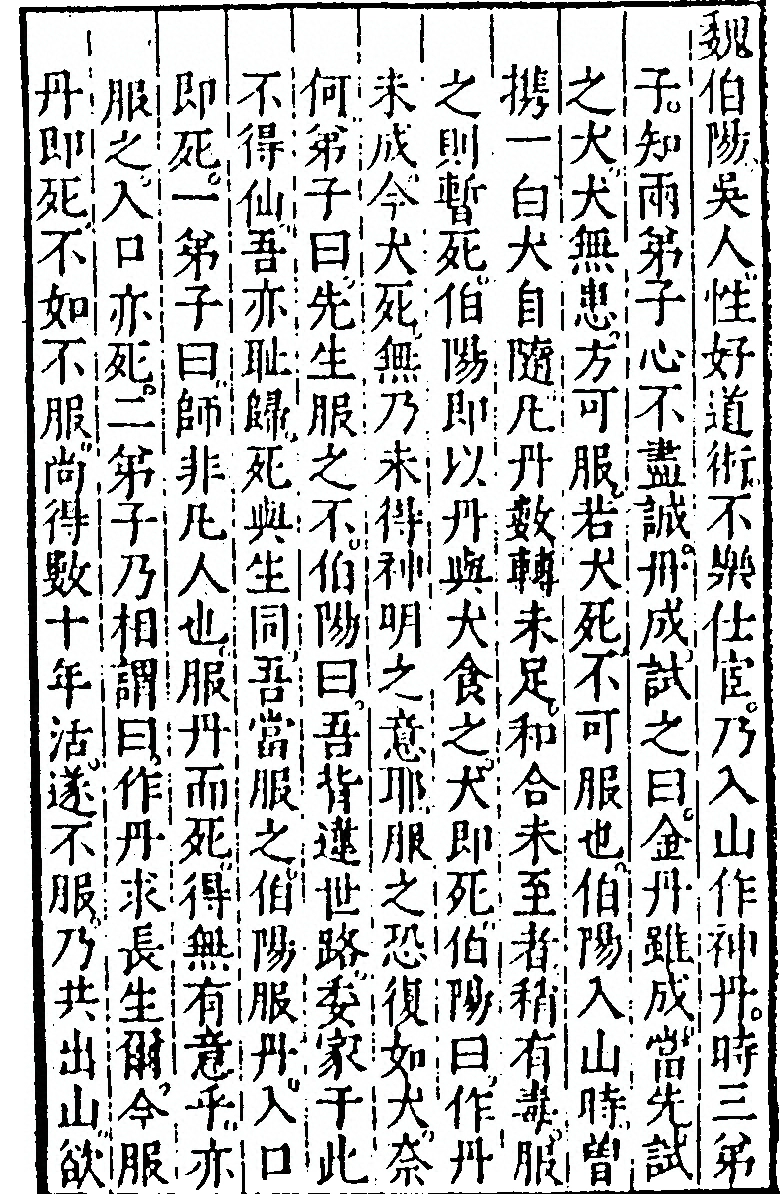 魏伯陽。吳人。性好道術。不樂仕宦。乃入山作神丹。時三弟
子。知兩弟子心不盡誠。丹成。試之曰。金丹雖成。當先試
之犬。犬無患。方可服。若犬死。不可服也。伯陽入山時。曽
携一白犬自隨。凡丹數轉未足。和合未至者。稍有毒。服
之則暫死。伯陽即以丹與犬食之。犬即死。伯陽曰。作丹
未成。今犬死。無乃未得神明之意耶。服之恐復如犬。奈
何。弟子曰。先生服之不。伯陽曰。吾背違世路。委家于此。
不得仙。吾亦耻歸。死與生同。吾當服之。伯陽服丹。入口
即死。一弟子曰。師非凡人也。服丹而死。得無有意乎。亦
服之。入口亦死。二弟子乃相謂曰。作丹求長生爾。今服
丹即死。不如不服。尚得數十年活。遂不服。乃共出山。欲